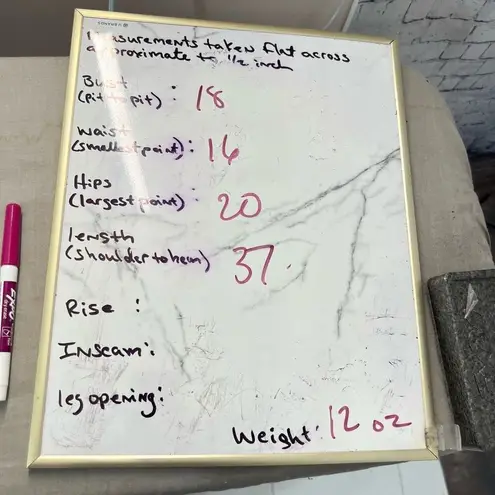 Measurements taken flat across
approximate to 1/2 inch
Bust
(pit to pit) : 18
Waist
(smallest point) : 16
Hips
(largest point) : 20
length
(shoulder to hem) 37.
Rise :
Inseam :
leg opening :
Weight : 12 oz
EXPO